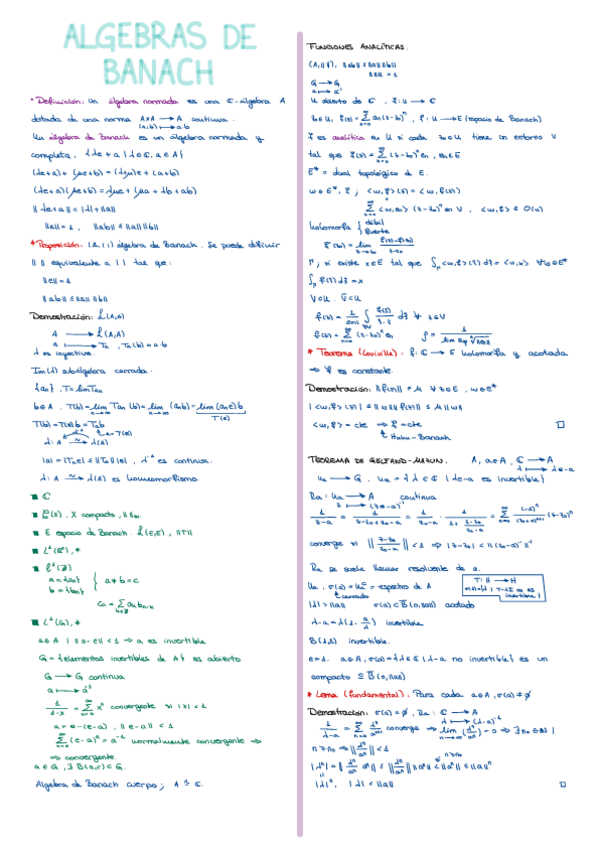 ALGEBRAS DE
BANACH
* Definición: Un álgebra normada es una ℂ-álgebra A
dotada de una norma A×A → A continua.
(a,b) ↦ a·b
Un álgebra de Banach es un álgebra normada y
completa, {λe+a | λ∈ℂ, a∈A}
(λe+a) + (μe+b) = (λ+μ)e + (a+b)
(λe+a)(μe+b) = λμe + (μa + λb + ab)
||λe+a|| = |λ| + ||a||
||e|| = 1, ||ab|| ≤ ||a|| ||b||
* Proposición: (A, | |) álgebra de Banach. Se puede definir
|| || equivalente a | | tal que:
||e|| = 1
||ab|| ≤ ||a|| ||b||
Demostración: L(A,A)
A → L(A,A)
a ↦ Ta, Ta(b) = a·b
λ es inyectiva.
Im(λ) subálgebra cerrada.
{an}, T = lim Tan
b∈A. T(b) = lim Tan(b) = lim (anb) = lim (ane)b
T(e)
T(b) = T(e)b = Tab
a = T(e)
λ: A → λ(A)
|a| = |Ta e| ≤ ||Ta|| |e|, λ⁻¹ es continua.
λ: A → λ(A) es homeomorfismo
■ ℂ
■ C(X), X compacto, || ||∞
■ E espacio de Banach. L(E,E), ||T||
■ *
■ ℓ¹(ℤ)
a = {an}
b = {bn}
a*b = c
cn = Σ ak bn-k
■ L¹(G), *
a∈A | ||a-e|| < 1 ⇒ a es invertible
G = {elementos invertibles de A} es abierto
G → G continua
a ↦ a⁻¹
1/(1-x) = Σ xⁿ convergente si |x| < 1
a = e-(e-a), ||e-a|| < 1
Σ (e-a)ⁿ = a⁻¹ normalmente convergente ⇒
⇒ convergente.
a∈G, ∃ B(a,r) ⊂ G.
Álgebra de Banach cuerpo; A ≅ ℂ.
FUNCIONES ANALÍTICAS.
(A, || ||), ||ab|| ≤ ||a|| ||b||
||e|| = 1
G → G
a ↦ a⁻¹
U abierto de ℂ, f: U → ℂ
z₀∈U, f(z) = Σ an(z-z₀)ⁿ, f: U → E (espacio de Banach)
f es analítica en U si cada z₀∈U tiene un entorno V
tal que f(z) = Σ (z-z₀)ⁿ en, en∈E
E* = dual topológico de E.
w∈E*, f; <w,f>(z) = <w,f(z)>
Σ <w,en> (z-z₀)ⁿ en V, <w,f> ∈ O(U)
holomorfa { débil
fuerte
f'(z₀) = lim (f(z)-f(z₀))/(z-z₀)
Γ; si existe x∈E tal que ∫Γ <w,f>(z) dz = <w,x> ∀w∈E*
∫Γ f(z) dz = x
V⊂U. V̄⊂U
f(z) = 1/2πi ∫ f(ξ)/(ξ-z) dξ ∀ z∈V
f(z) = Σ (z-z₀)ⁿ en ρ = 1/(lim sup ⁿ√||en||)
* Teorema (Liouville): f: ℂ → E holomorfa y acotada
⇒ f es constante.
Demostración: ||f(z)|| ≤ M ∀ z∈ℂ, w∈E*
|<w,f>(z)| ≤ ||w|| ||f(z)|| ≤ M ||w||
<w,f> = cte ⇒ f = cte □
↑ Hahn-Banach
TEOREMA DE GELFAND-MAZUR. A, a∈A, ℂ → A
λ ↦ λe-a
Ua → G. Ua = {λ∈ℂ | λe-a es invertible}
Ra: Ua → A continua
z ↦ (ze-a)⁻¹
1/(z-a) = 1/(z-z₀+z₀-a) = 1/(z₀-a) · 1/(1+(z-z₀)/(z₀-a)) = Σ (-1)ⁿ/(z₀-a)ⁿ⁺¹ (z-z₀)ⁿ
converge si ||(z-z₀)/(z₀-a)|| < 1 ⇒ |z-z₀| < 1/||(z₀-a)⁻¹||
Ra se suele llamar resolvente de a.
Ua, σ(a) = Uaᶜ = espectro de A
↑ cerrado
T: H → H
σ(T) = {λ | T-λE no es
invertible}
|λ| > ||a|| σ(a) ⊂ B̄(0,||a||) acotado
λ-a = λ(1-a/λ) invertible
B(1,1) invertible.
e=1. a∈A, σ(a) = {λ∈ℂ | λ-a no invertible} es un
compacto ⊆ B̄(0,||a||)
* Lema (fundamental): Para cada a∈A, σ(a) ≠ ∅
Demostración: σ(a) = ∅, Ra: ℂ → A
λ ↦ (λ-a)⁻¹
n ≥ n₀ ⇒ ||λⁿ/aⁿ|| < 1
|λ|ⁿ, |λ| < ||a|| □